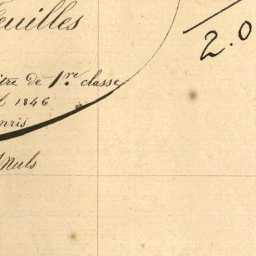 euilles
2.0
tre de 1re classe
1846
nris
Nuls